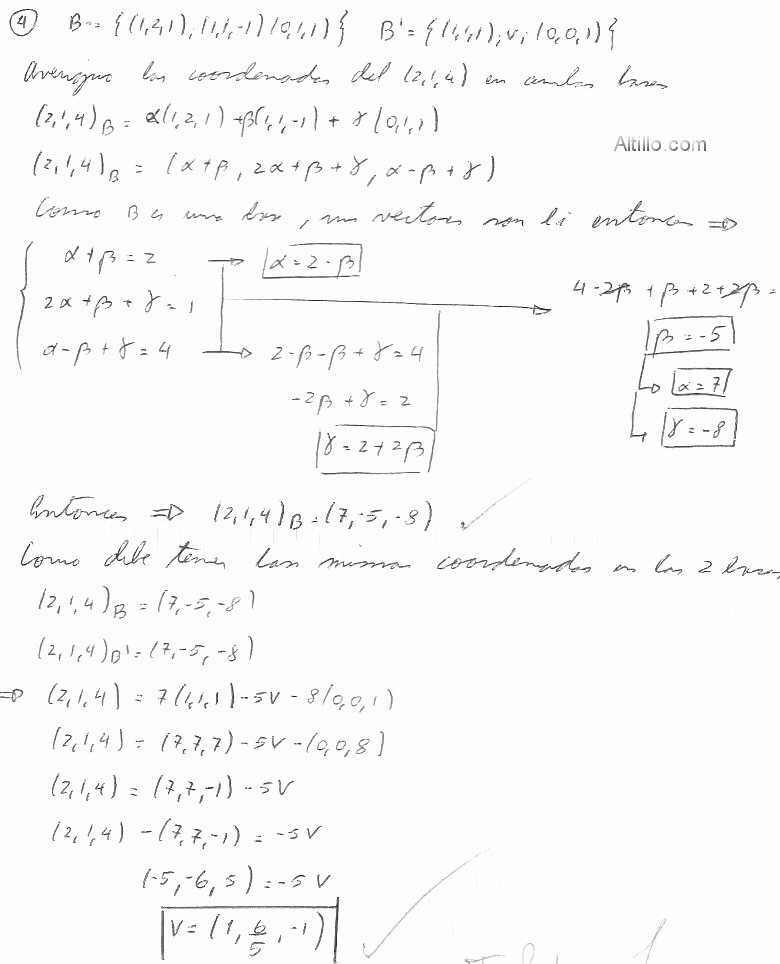 4 B = {(1,2,1), (1,1,-1) (0,1,1)} B' = {(1,1,1), v, (0,0,1)}
Averiguo las coordenadas del (2,1,4) en ambas bases
(2,1,4)B = α(1,2,1) + β(1,1,-1) + γ(0,1,1)
Altillo.com
(2,1,4)B = (α+β, 2α+β+γ, α-β+γ)
Como B es una base, sus vectores son li entonces ⇒
α+β = 2 → α = 2-β
2α+β+γ = 1
4-2β+β+2+2β =
α-β+γ = 4 → 2-β-β+γ = 4
β = -5
-2β+γ = 2
α = 7
γ = 2+2β
γ = -8
Entonces ⇒ (2,1,4)B = (7,-5,-8) ✓
Como debe tener las mismas coordenadas en las 2 bases
(2,1,4)B = (7,-5,-8)
(2,1,4)B' = (7,-5,-8)
⇒ (2,1,4) = 7(1,1,1)-5V-8(0,0,1)
(2,1,4) = (7,7,7)-5V-(0,0,8)
(2,1,4) = (7,7,-1)-5V
(2,1,4)-(7,7,-1) = -5V
(-5,-6,5) = -5V
V = (1, 6/5, -1) ✓